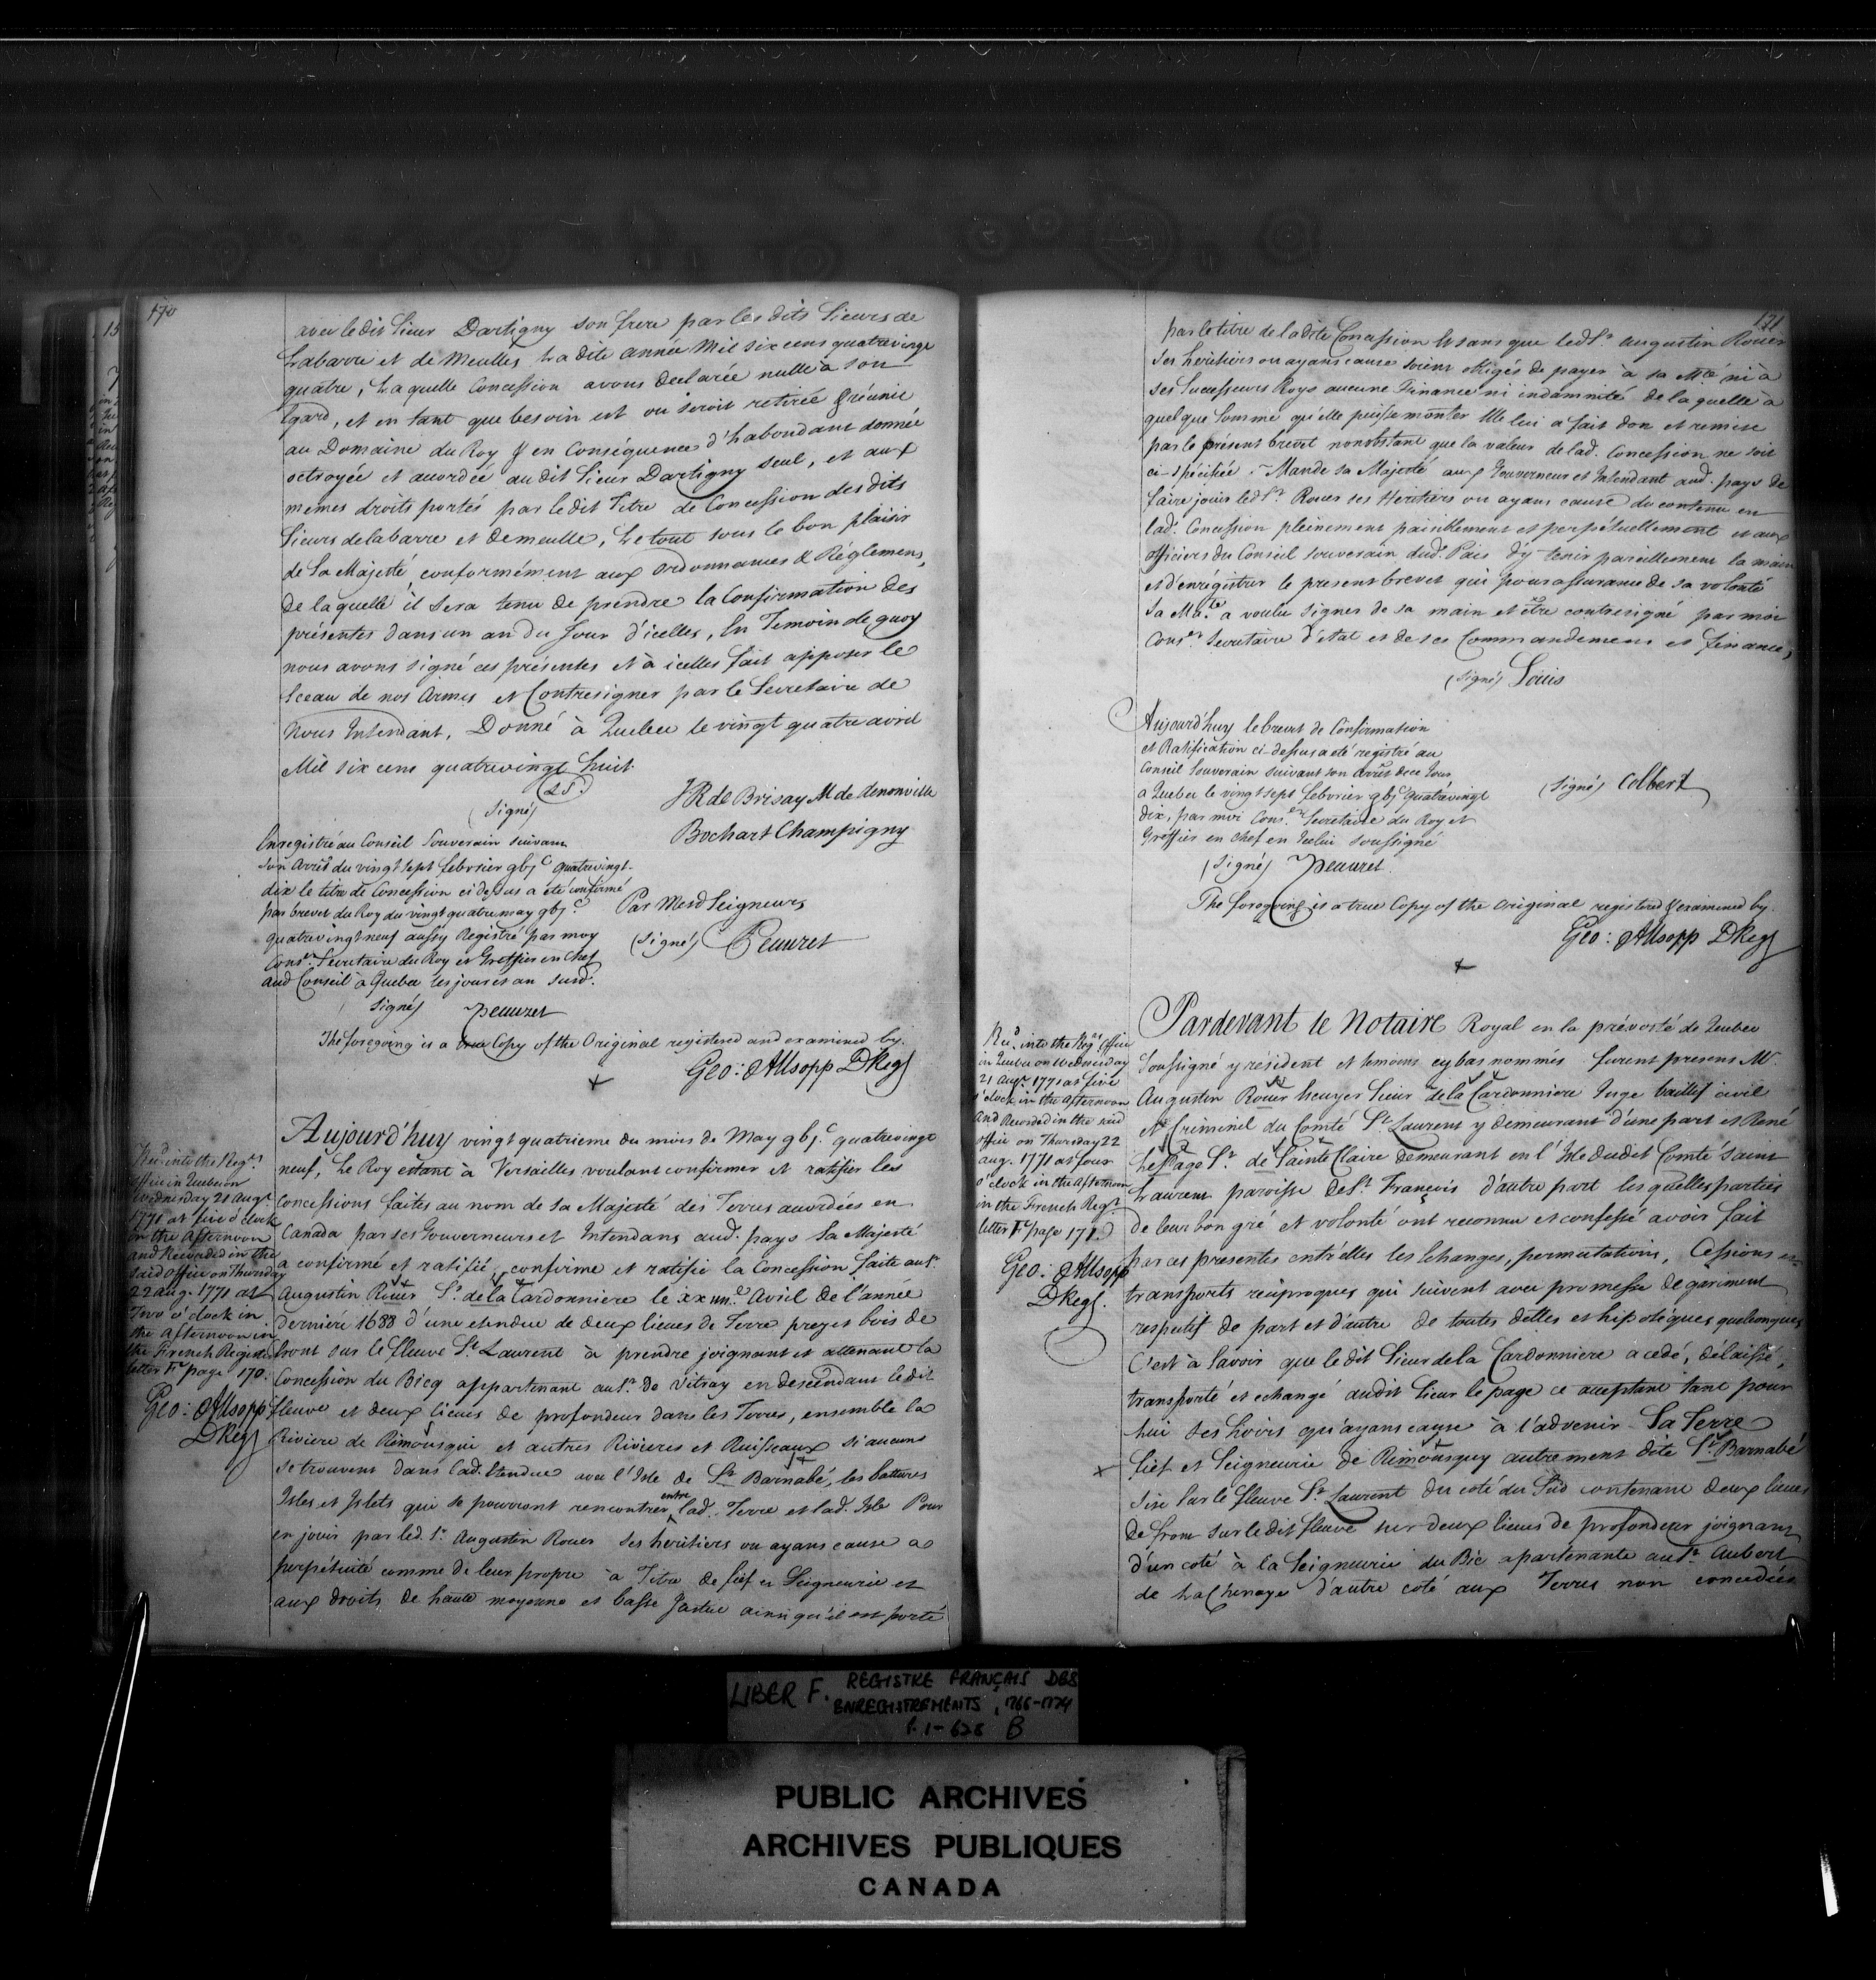 170
avec ledit Sieur Dartigny son frere par les dits Sieurs de
Labarre et de Meulles La dite année Mil six cens quatrevingt
quatre, Laquelle Concession avons declarée nulle à son
Egard, et en tant que besoin est ou seroit retirée & réunie
au Domaine du Roy & en Conséquence d'habondant donnée
octroyée et accordée audit Sieur Dartigny seul, et aux
memes droits portés par ledit Titre de Concession des dits
Sieurs delabarre et demeulle, Le tout sous le bon plaisir
de Sa Majesté, conformément aux ordonnances & Réglemens,
de laquelle il sera tenu de prendre la Confirmation des
présentes dans un an du Jour d'icelles, En Temoin de quoy
nous avons signé ces présentes et à icelles fait apposer le
Sceau de nos Armes et Contresigner par le Secretaire de
Nous Intendant, Donné à Quebec le vingt quatre avril
Mil six cens quatrevingt huit.
(LS.)
(Signé) JR de Brisay M de denonville
Bochart Champigny
Enregistré au Conseil Souverain suivant
son Arrest du vingt sept febvrier gbjc quatrevingt-
dix le titre de Concession ci dessus a été confirmé
par brevet du Roy du vingt quatre may gbjc
quatrevingt neuf aussy Registré par moy
Consr. Secretaire du Roy et Greffier en Chef
aud Conseil à Quebec les jour et an susd.
Signé) Peuuret
Par Mesd Seigneurs
(Signé) Peuuret
The foregoing is a true Copy of the Original registered and examined by.
Geo: Allsopp DRegr
Recd. into the Regrs
office in Quebec on
Wednesday 21 Augt.
1771 at five o'clock
in the Afternoon
and Recorded in the
said office on Thursday
22 aug. 1771 at
Two o'clock in
the afternoon in
the French Register
letter F page 170.
Geo: Allsopp
DRegr
Aujourd'huy vingt quatrieme du mois de May gbj.c quatrevingt
neuf, Le Roy estant à Versailles voulant confirmer et ratifier les
Concessions faites au nom de sa Majesté des Terres accordées en
Canada par ses Gouverneurs et Intendans aud. pays Sa Majesté
a confirmé et ratifié, confirme et ratifie la Concession faite au Sr.
Augustin Rouer Sr. de la Cardonniere le xxiiii.e Avril de l'année
derniere 1688 d'une etendue de deux lieues de Terre prez et bois de
front sur le fleuve St. Laurent à prendre joignant et attenant la
Concession du Bicq appartenant au Sr. de Vitray en descendant ledit
fleuve et deux lieues de profondeur dans les Terres, ensemble la
Riviere de Rimousqui et autres Rivieres et Ruisseaux si aucuns
se trouvent dans lad. Etendue avec l'Isle de St. Barnabé, les battures
Isles et Islets qui se pourront rencontrer entre lad. Terre et lad. Isle Pour
en jouir par led. Sr. Augustin Rouer ses heritiers ou ayans cause a
perpétuité comme de leur propre à Titre de fief et Seigneurie et
aux droits de haute moyenne et basse Justice ainsi qu'il est porté
171
par le titre de la dite Concession Et sans que led Sr. Augustin Rouer
ses heritiers ou ayans cause soient obligés de payer à sa Mté ni à
ses Successeurs Roys aucune Finance ni indamnité de la quelle à
quelque Somme qu'elle puisse monter Elle lui a fait don et remise
par le présent brevet nonobstant que la valeur de lad. Concession ne soit
ci-spécifiée. Mande sa Majesté aux Gouverneur et Intendant aud. pays de
faire jouir led Sr. Rouer ses Heritiers ou ayans cause du contenu en
lad. Concession pleinement paisiblement et perpétuellement et aux
officiers du Conseil souverain dud. Pais d'y tenir pareillement la main
et d'enrégistrer le present brevet qui pour assurance de sa volonté
Sa Mate. a voulu signer de sa main et être contresigné par moi
Conser. Secretaire d'etat et de ses Commandemens et finances,
(Signé) Louis
Aujourd'huy le brevet de Confirmation
et Ratification ci-dessus a eté registré au
Conseil Souverain suivant son arrest de ce Jour
a Quebec le vingt sept febvrier gbjc quatrevingt
dix, par moi Conser. Secretaire du Roy et
Greffier en chef en Icelui soussigné
(Signé) Peuuret.
(Signé) Colbert
The foregoing is a true Copy of the Original registered & examined by.
Geo: Allsopp DRegr
Recd. into the Regrs Office
in Quebec on Wednesday
21 Augt. 1771 at five
o'clock in the afternoon
and Recorded in the said
office on Thursday 22
aug. 1771 at four
o'clock in the afternoon
in the French Regr.
letter F page 171.
Geo: Allsopp
DRegr.
Pardevant le Notaire Royal en la prévosté de Quebec
Soussigné y résident et temoins cy bas nommés furent presens Mr.
Augustin Rouer Escuyer Sieur de la Cardonniere Juge baillif civil
et Criminel du Comté St. Laurent y demeurant d'une part et René
Le Page Sr. de Sainte Claire demeurant en l'Isle dudit Comté Saint
Laurent paroisse de St. François d'autre part lesquelles parties
de leur bon gré et volonté ont reconnu et confessé avoir fait
par ces presentes entr'elles les Echanges, permutations, Cessions et
transports réciproques qui suivent avec promesse de gariment
respectif de part et d'autre de toutes dettes et hipotéques quelconques,
C'est à Savoir que le dit Sieur de la Cardonniere a cedé, délaissé,
transporté et echangé audit Sieur le page ce acceptant tant pour
lui ses hoirs qu'ayans cause à l'advenir La Terre
fief et Seigneurie de Rimousquy autrement dite St. Barnabé
Size Sur le fleuve St. Laurent du coté du Sud contenant deux lieues
de front sur ledit fleuve sur deux lieues de profondeur joignant
d'un coté à la Seigneurie du Bic apartenante au Sr. Aubert
de La Chenaye d'autre coté aux Terres non concedées
LIBER F. REGISTRE FRANÇAIS DES
ENREGISTREMENTS, 1766-1774
P. 1-628 B
PUBLIC ARCHIVES
ARCHIVES PUBLIQUES
CANADA